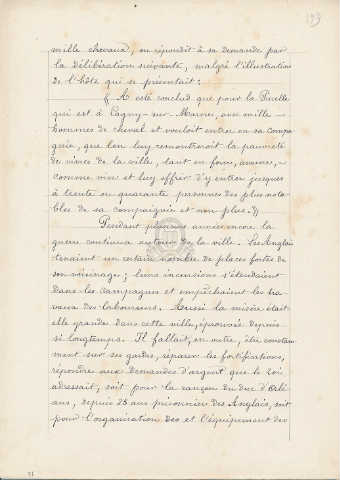 193
mille chevaux, on répondit à sa demande par
la délibération suivante, malgré l'illustration
de l'hôte qui se présentait :
« A esté conclud que pour la Pucelle
qui est à Lagny-sur-Marne, avec mille
hommes de cheval et vouloit entrer en sa compa
gnie, que l'en luy remontreroit la pauvreté
de vivres de la ville, tant en foin, avoine,
comme vin et luy offrir d'y entrer jusques
à trente ou quarante personnes des plus nota
bles de sa compaignie et non plus. »
Pendant plusieurs années encore la
guerre continua autour de la ville. Les Anglais
tenaient un certain nombre de places fortes de
son voisinage ; leurs incursions s'étendaient
dans les campagnes et empêchaient les tra
vaux des laboureurs. Aussi la misère était
elle grande dans cette ville, éprouvée depuis
si longtemps. Il fallait, en outre, être constam
ment sur ses gardes, réparer les fortifications,
répondre aux demandes d'argent que le Roi
adressait, soit pour la rançon du duc d'Orlé
ans, depuis 25 ans prisonnier des Anglais, soit
pour l'organisation des et l'équipement des